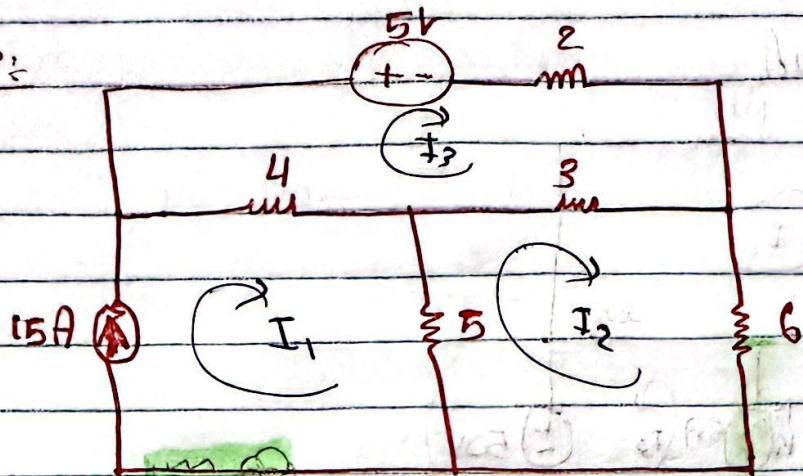 5V
2
+ -
I3
4
3
15A
I1
5
I2
6